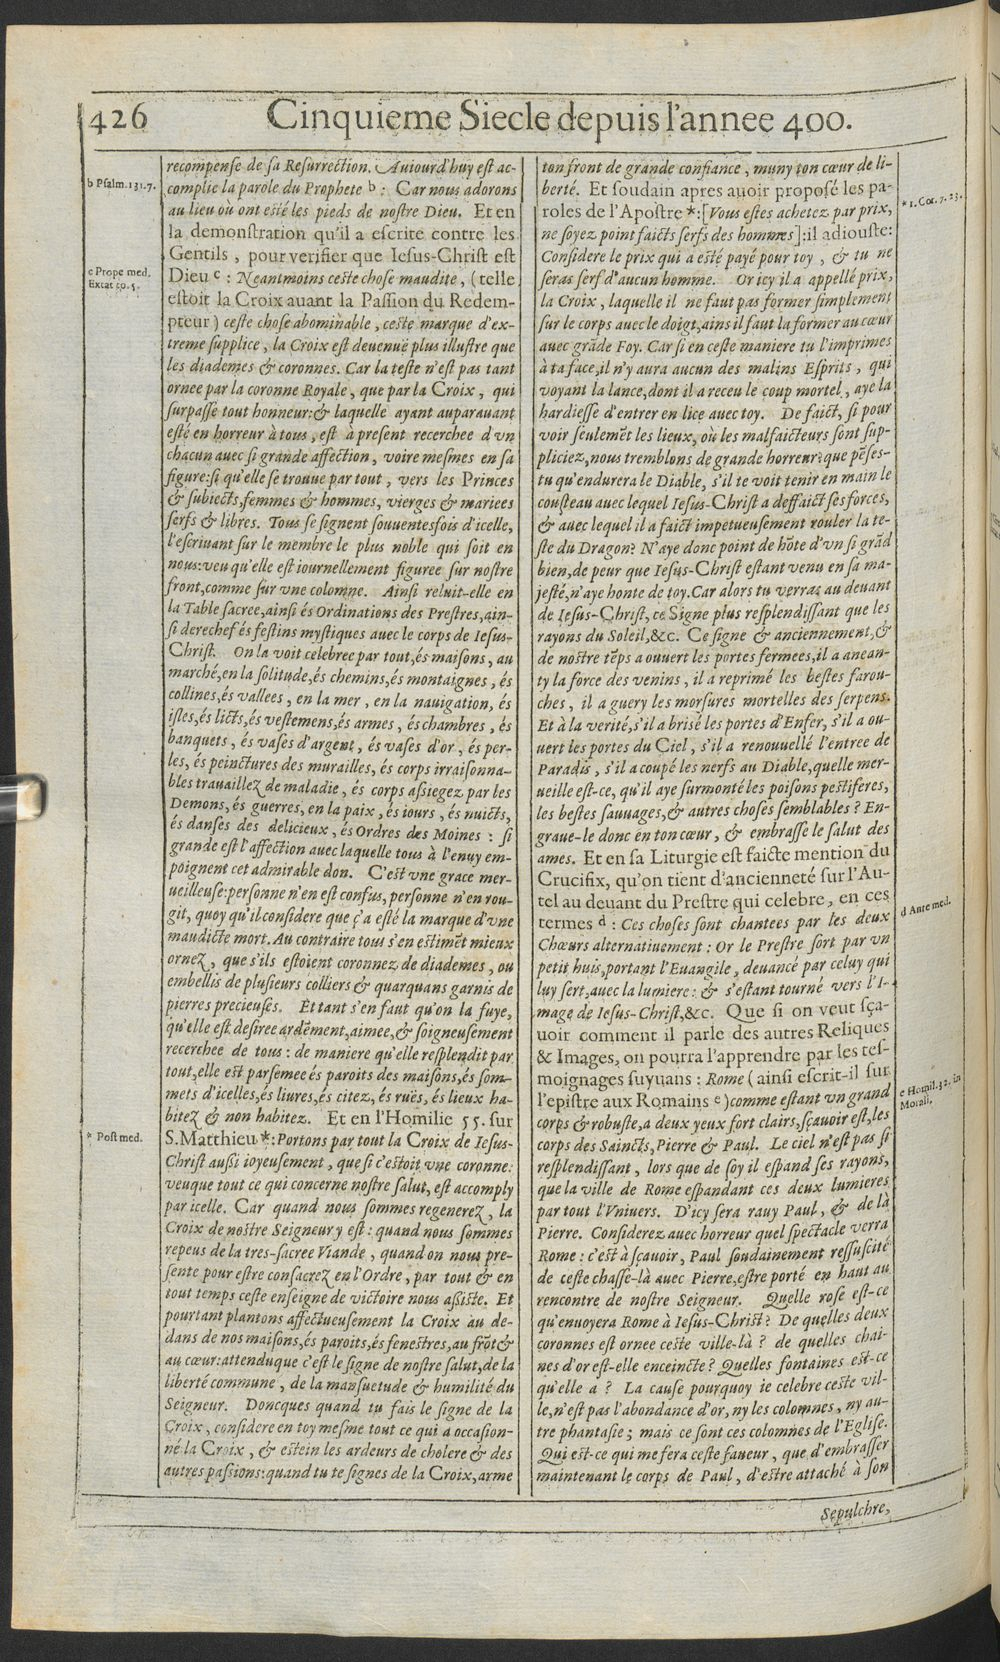 426
Cinquieme Siecle depuis l'annee 400.
b Psalm. 131.7.
c Prope med.
Extat to. 5.
* Post med.
recompense de sa Resurrection. Auiourd'huy est ac-
complie la parole du Prophete b : Car nous adorons
au lieu où ont esté les pieds de nostre Dieu. Et en
la demonstration qu'il a escrite contre les
Gentils, pour verifier que Iesus-Christ est
Dieu c : Neantmoins ceste chose maudite, (telle
estoit la Croix auant la Passion du Redem-
pteur) ceste chose abominable, ceste marque d'ex-
treme supplice, la Croix est deuenuë plus illustre que
les diademes & coronnes. Car la teste n'est pas tant
ornee par la coronne Royale, que par la Croix, qui
surpasse tout honneur: & laquelle ayant auparauant
esté en horreur à tous, est à present recerchee d'vn
chacun auec si grande affection, voire mesmes en sa
figure: si qu'elle se trouue par tout, vers les Princes
& subiects, femmes & hommes, vierges & mariees
serfs & libres. Tous se signent souuentesfois d'icelle,
l'escriuant sur le membre le plus noble qui soit en
nous: veu qu'elle est iournellement figuree sur nostre
front, comme sur vne colomne. Ainsi reluit-elle en
la Table sacree, ainsi és Ordinations des Prestres, ain-
si derechef és festins mystiques auec le corps de Iesus-
Christ. On la voit celebree par tout, és maisons, au
marché, en la solitude, és chemins, és montaignes, és
collines, és vallees, en la mer, en la nauigation, és
isles, és licts, és vestemens, és armes, és chambres, és
banquets, és vases d'argent, és vases d'or, és per-
les, és peinctures des murailles, és corps irraisonna-
bles trauaillez de maladie, és corps assiegez par les
Demons, és guerres, en la paix, és iours, és nuicts,
és danses des delicieux, és Ordres des Moines : si
grande est l'affection auec laquelle tous à l'enuy em-
poignent cet admirable don. C'est vne grace mer-
ueilleuse: personne n'en est confus, personne n'en rou-
git, quoy qu'il considere que ç'a esté la marque d'vne
maudicte mort. Au contraire tous s'en estimēt mieux
ornez, que s'ils estoient coronnez de diademes, ou
embellis de plusieurs colliers & quarquans garnis de
pierres precieuses. Et tant s'en faut qu'on la fuye,
qu'elle est desiree ardēment, aimee, & soigneusement
recerchee de tous : de maniere qu'elle resplendit par
tout, elle est parsemee és paroits des maisons, és som-
mets d'icelles, és liures, és citez, és ruës, és lieux ha-
bitez & non habitez. Et en l'Homilie 55. sur
S. Matthieu *: Portons par tout la Croix de Iesus-
Christ aussi ioyeusement, que si c'estoit vne coronne:
veuque tout ce qui concerne nostre salut, est accomply
par icelle. Car quand nous sommes regenerez, la
Croix de nostre Seigneur y est : quand nous sommes
repeus de la tres-sacree Viande, quand on nous pre-
sente pour estre consacrez en l'Ordre, par tout & en
tout temps ceste enseigne de victoire nous assiste. Et
pourtant plantons affectueusement la Croix au de-
dans de nos maisons, és paroits, és fenestres, au frōt &
au cœur: attenduque c'est le signe de nostre salut, de la
liberté commune, de la mansuetude & humilité du
Seigneur. Doncques quand tu fais le signe de la
Croix, considere en toy mesme tout ce qui a occasion-
né la Croix, & estein les ardeurs de cholere & des
autres passions: quand tu te signes de la Croix, arme
ton front de grande confiance, muny ton cœur de li-
berté. Et soudain apres auoir proposé les pa-
roles de l'Apostre *: [Vous estes achetez par prix,
ne soyez point faicts serfs des hommes]: il adiouste:
Considere le prix qui a esté payé pour toy, & tu ne
seras serf d'aucun homme. Or icy il a appellé prix,
la Croix, laquelle il ne faut pas former simplement
sur le corps auec le doigt, ains il faut la former au cœur
auec grāde Foy. Car si en ceste maniere tu l'imprimes
à ta face, il n'y aura aucun des malins Esprits, qui
voyant la lance, dont il a receu le coup mortel, aye la
hardiesse d'entrer en lice auec toy. De faict, si pour
voir seulemēt les lieux, où les malfaicteurs sont sup-
pliciez, nous tremblons de grande horreur: que pēses-
tu qu'endurera le Diable, s'il te voit tenir en main le
cousteau auec lequel Iesus-Christ a deffaict ses forces,
& auec lequel il a faict impetueusement rouler la te-
ste du Dragon? N'aye donc point de hōte d'vn si grād
bien, de peur que Iesus-Christ estant venu en sa ma-
jesté, n'aye honte de toy. Car alors tu verras au deuant
de Iesus-Christ, ce Signe plus resplendissant que les
rayons du Soleil, &c. Ce signe & anciennement, &
de nostre tēps a ouuert les portes fermees, il a anean-
ty la force des venins, il a reprimé les bestes farou-
ches, il a guery les morsures mortelles des serpens.
Et à la verité, s'il a brisé les portes d'Enfer, s'il a ou-
uert les portes du Ciel, s'il a renouuellé l'entree de
Paradis, s'il a coupé les nerfs au Diable, quelle mer-
ueille est-ce, qu'il aye surmonté les poisons pestiferes,
les bestes sauuages, & autres choses semblables ? En-
graue-le donc en ton cœur, & embrasse le salut des
ames. Et en sa Liturgie est faicte mention du
Crucifix, qu'on tient d'ancienneté sur l'Au-
tel au deuant du Prestre qui celebre, en ces
termes d : Ces choses sont chantees par les deux
Chœurs alternatiuement : Or le Prestre sort par vn
petit huis, portant l'Euangile, deuancé par celuy qui
luy sert, auec la lumiere : & s'estant tourné vers l'I-
mage de Iesus-Christ, &c. Que si on veut sça-
uoir comment il parle des autres Reliques
& Images, on pourra l'apprendre par les tes-
moignages suyuans : Rome (ainsi escrit-il sur
l'epistre aux Romains e) comme estant vn grand
corps & robuste, a deux yeux fort clairs, sçauoir est, les
corps des Saincts, Pierre & Paul. Le ciel n'est pas si
resplendissant, lors que de soy il espand ses rayons,
que la ville de Rome espandant ces deux lumieres
par tout l'Vniuers. D'icy sera rauy Paul, & de là
Pierre. Considerez auec horreur quel spectacle verra
Rome : c'est à sçauoir, Paul soudainement ressuscité
de ceste chasse-là auec Pierre, estre porté en haut au
rencontre de nostre Seigneur. Quelle rose est-ce
qu'enuoyera Rome à Iesus-Christ? De quelles deux
coronnes est ornee ceste ville-là ? de quelles chai-
nes d'or est-elle enceincte? Quelles fontaines est-ce
qu'elle a ? La cause pourquoy ie celebre ceste vil-
le, n'est pas l'abondance d'or, ny les colomnes, ny au-
tre phantasie ; mais ce sont ces colomnes de l'Eglise.
Qui est-ce qui me fera ceste faueur, que d'embrasser
maintenant le corps de Paul, d'estre attaché à son
Sepulchre,
* 1. Cor. 7. 23.
d Ante med.
e Homil. 32. in
Morali.